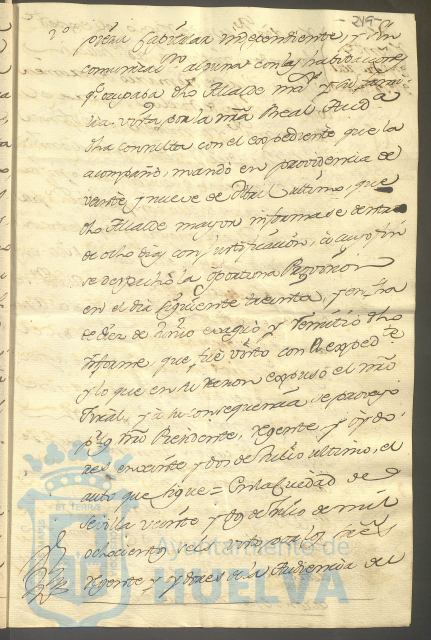 219
pieza Capitular independiente, y sin
comunicac.on alguna con las havitaciones
q.e ocupaba dho Alcalde ma.r y su fami
lia: vista por la nra Real Aud.a
dha consulta con el expediente que la
acompaño, mandó en providencia de
veinte y nueve de Abril ultimo, que
dho Alcalde mayor informase dentro
de ocho dias con justificacion, à cuyo fin
se despachó la oportuna Provision
en el dia siguiente treinta, y en fha
de diez de Junio evaquó y remitió dho
Informe, que fue visto con el exped.te
y lo que en su razon expuso el nro
Fiscal, y à su consequencia se proveyó
p.r nro Presidente, Regente, y oydo
res en veinte y dos de Julio ultimo, el
auto que sigue = En la Ciudad de
Sevilla veinte y dos de Julio de mil
ochocientos seis visto por los Señores
Regente y oydores de la Audiencia de
Ayuntamiento de
HUELVA